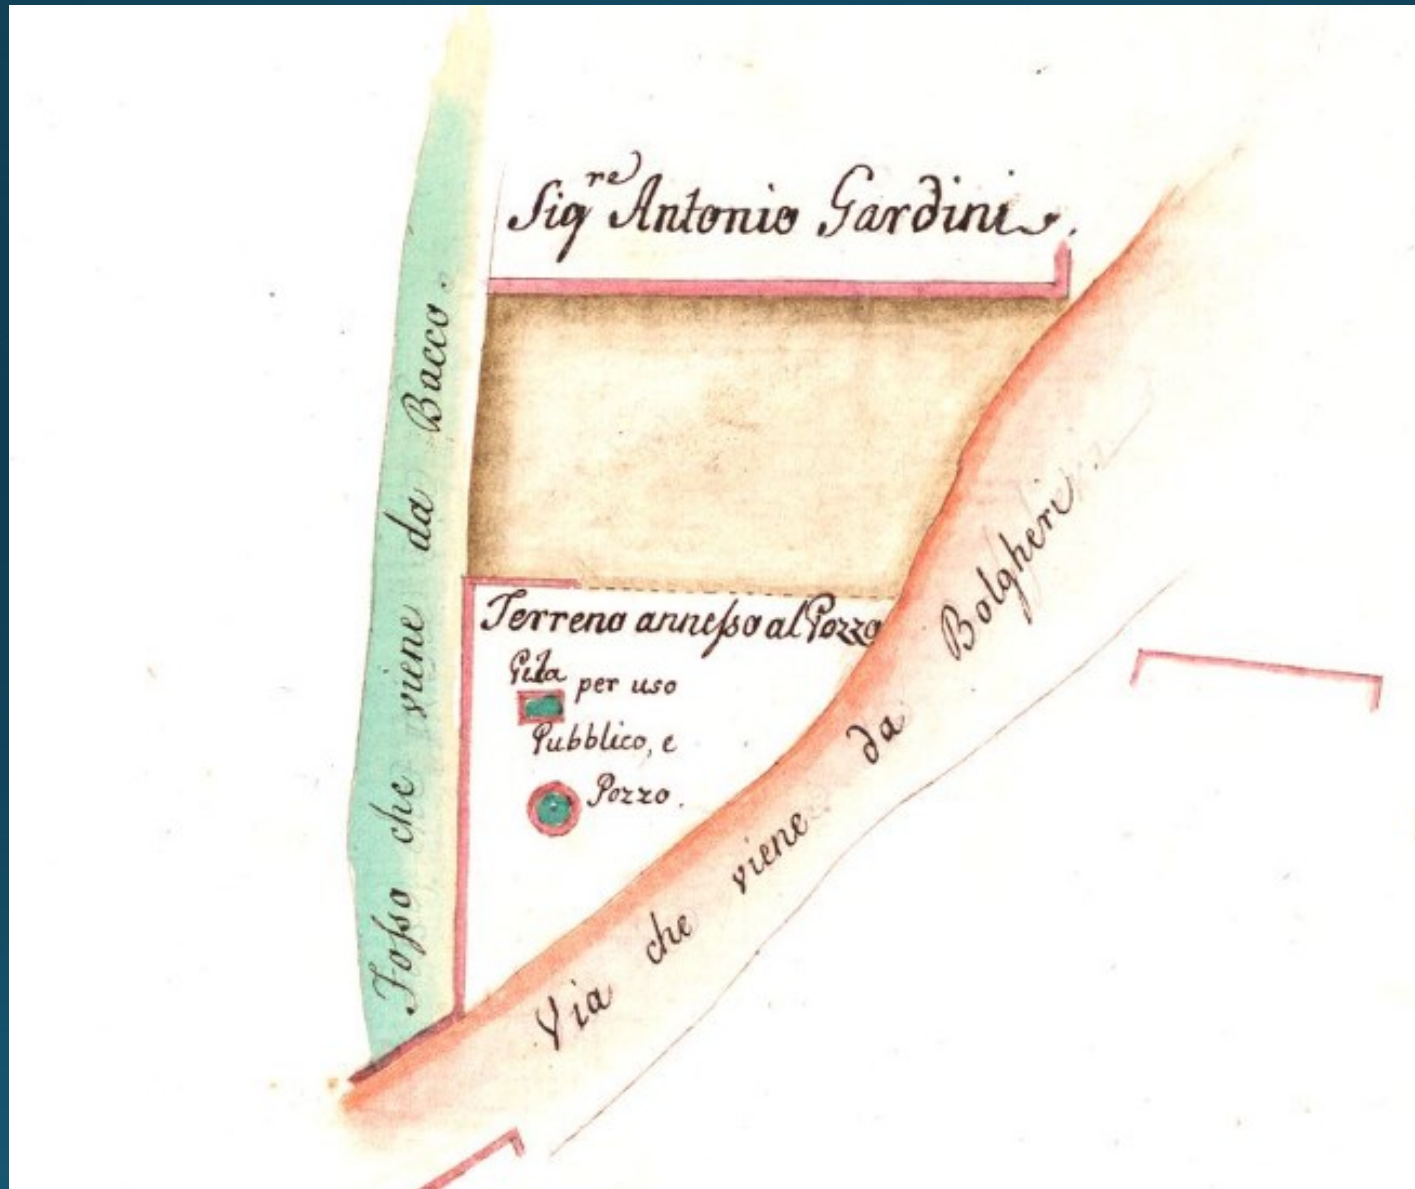 Sigre Antonio Gardini.
Fosso che viene da Bacco.
Terreno annesso al Pozzo
Pila per uso
Pubblico, e
Pozzo.
Via che viene da Bolgheri